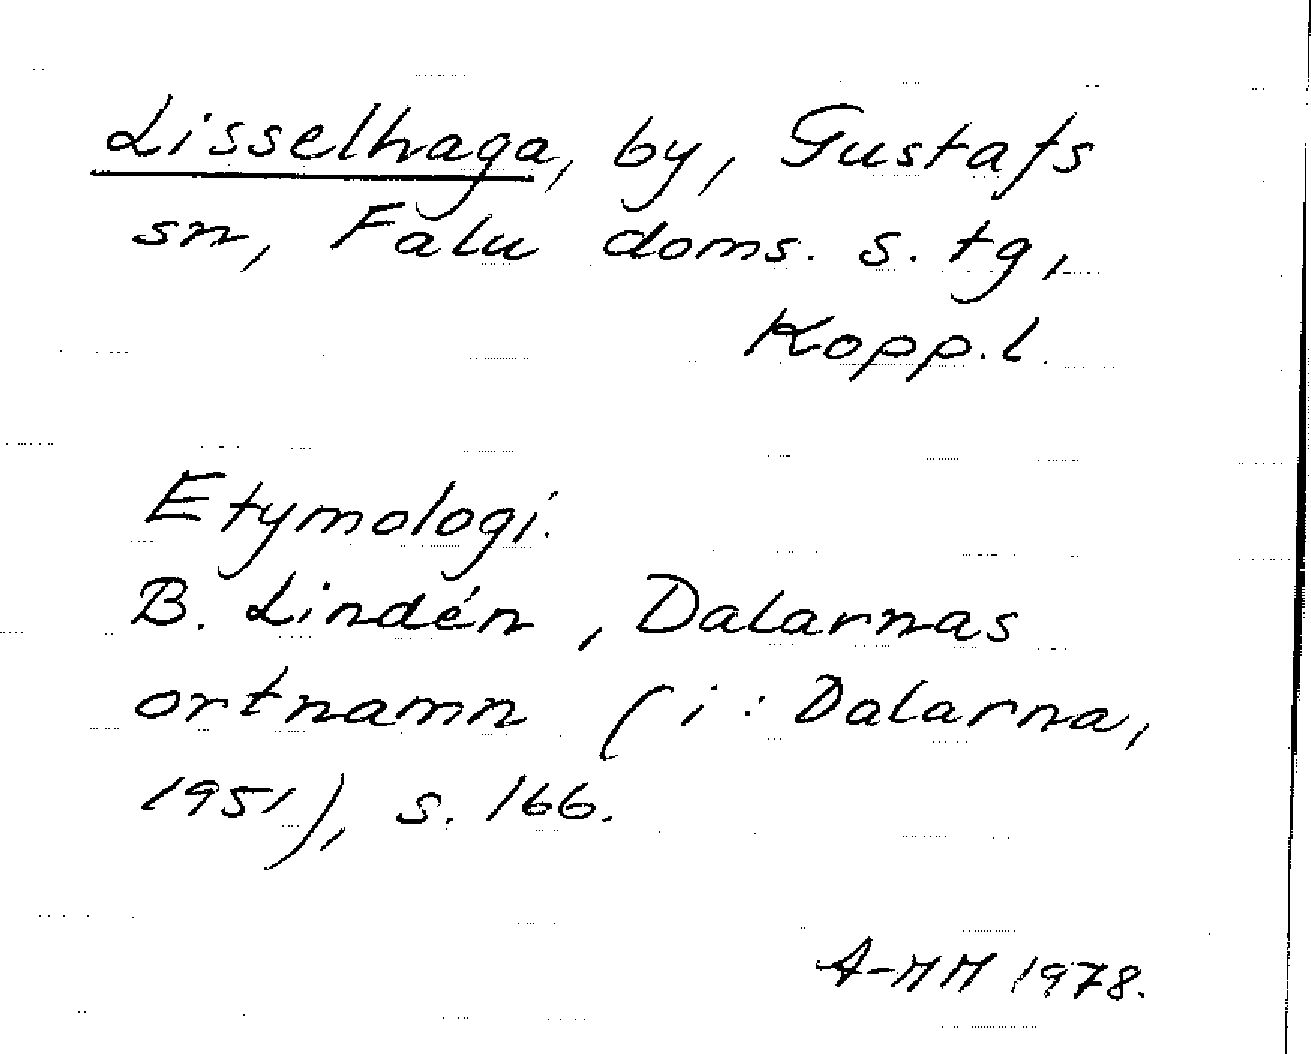 Lisselhaga, by, Gustafs
sn, Falu doms. s. tg,
Kopp.l.
Etymologi.
B. Lindén, Dalarnas
ortnamn (i: Dalarna,
1951), s. 166.
A-MM 1978.